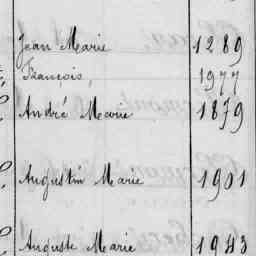 Jean Marie 1289
François, 1977
André Marie 1879
Augustin Marie 1901
Auguste Marie 1943